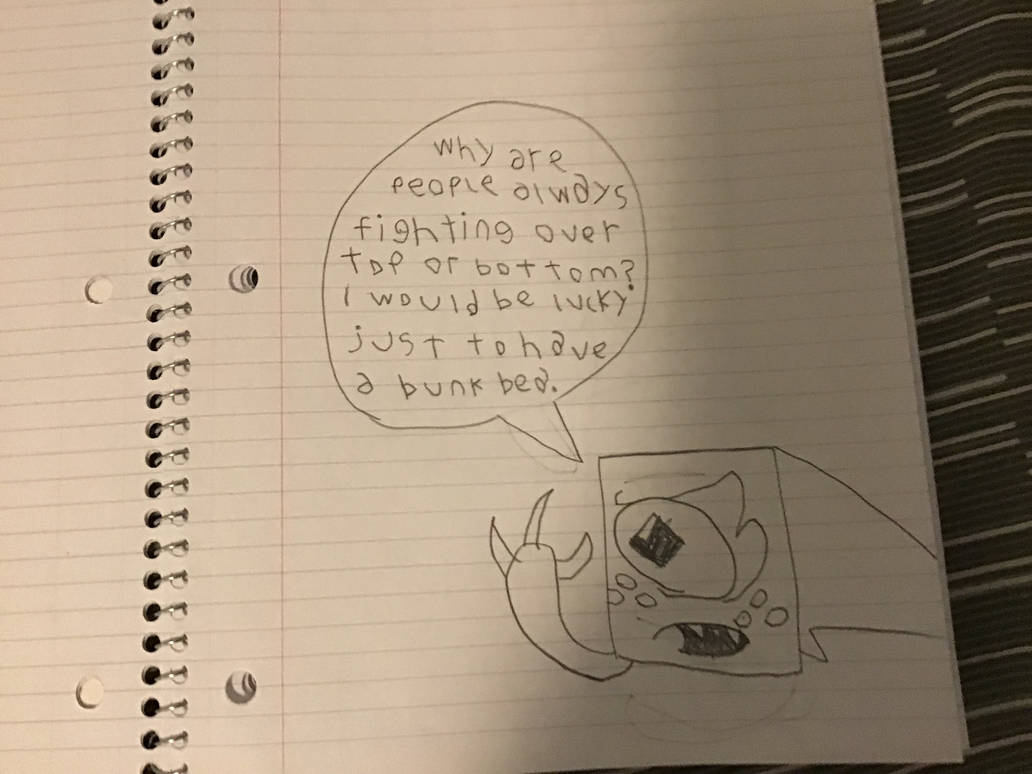 why are
people always
fighting over
top or bottom?
I would be lucky
just to have
a bunk bed.